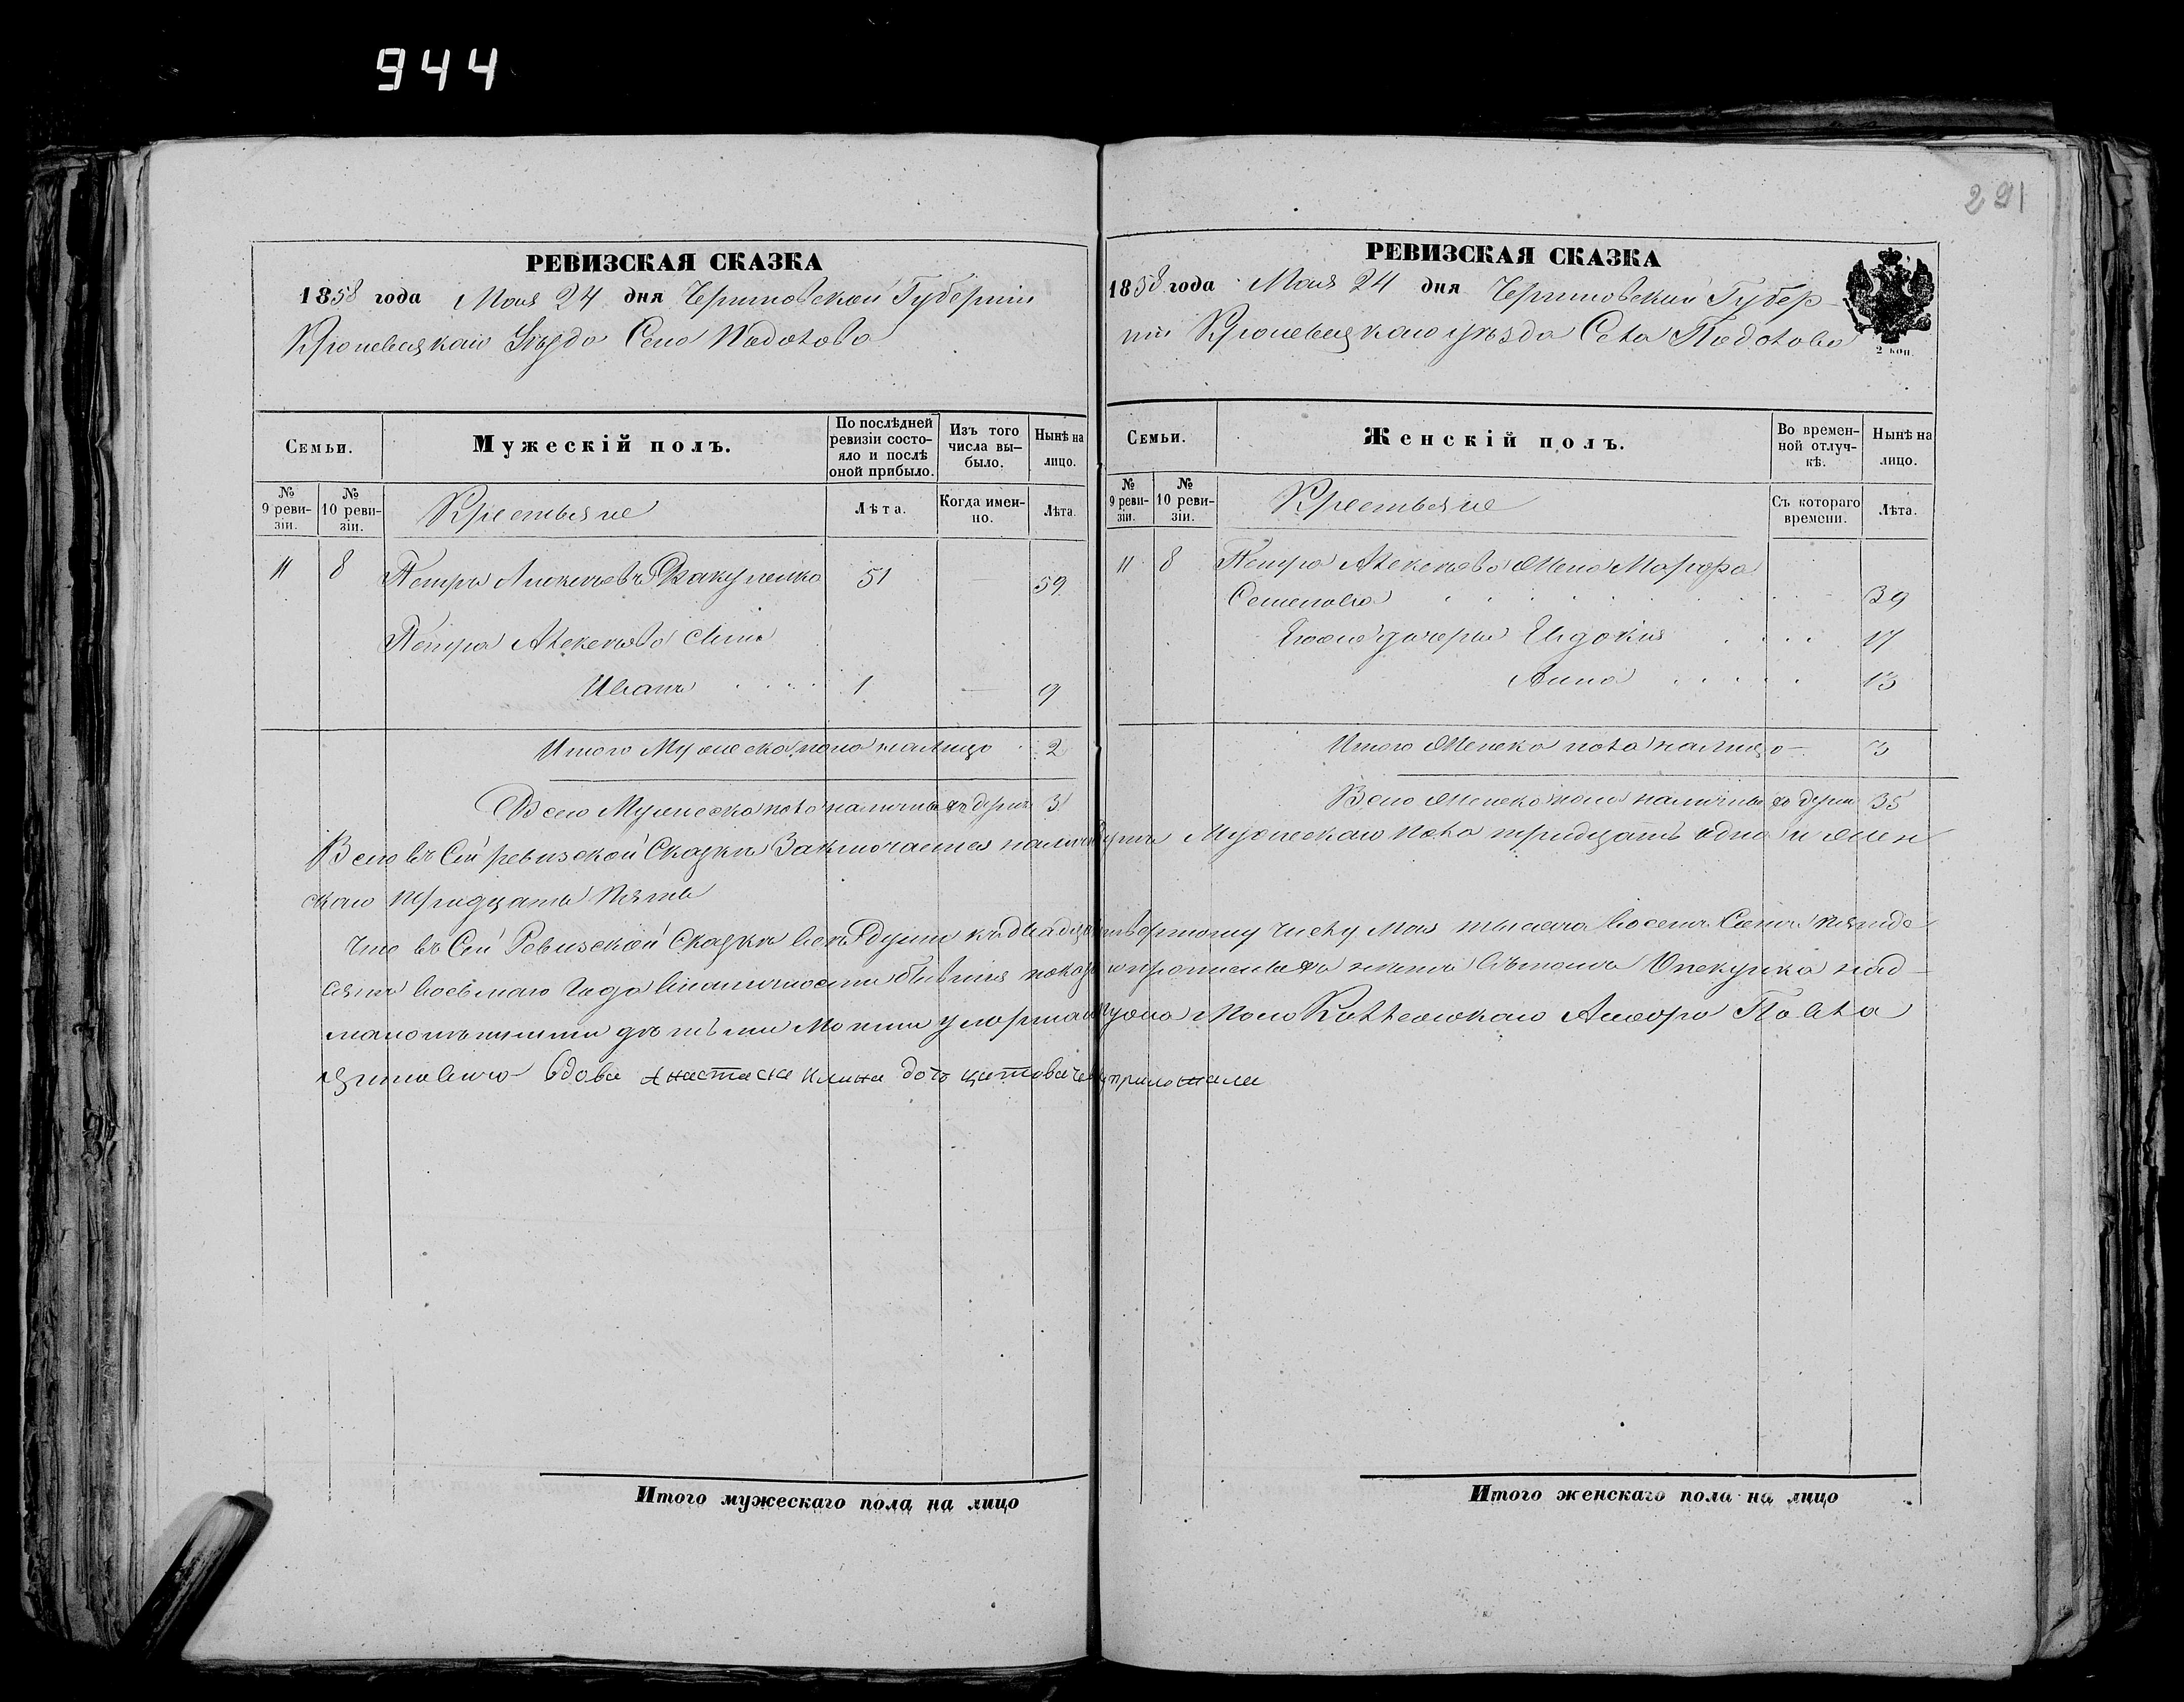 944
291
РЕВИЗСКАЯ СКАЗКА
1858 года Мая 24 дня Черниговской Губерніи
Кролевецкаго Уѣзда Села Подолова
Семьи.
Мужескій полъ.
По послѣдней ревизіи состояло и послѣ оной прибыло.
Изъ того числа выбыло.
Нынѣ на лицо.
№ 9 ревизіи.
№ 10 ревизіи.
Крестьяне
Лѣта.
Когда именно.
Лѣта.
11 8 Петръ Алексѣевъ 51 — 59
Петра Алексѣева сынъ
Иванъ 1 — 9
Итого Мужеска пола налицо 2
Всего Мужеска пола наличныхъ душъ 31
РЕВИЗСКАЯ СКАЗКА
1858 года Мая 24 дня Черниговской Губер-
ніи Кролевецкаго уѣзда Села Подолова
2 коп.
Семьи.
Женскій полъ.
Во временной отлучкѣ.
Нынѣ на лицо.
№ 9 ревизіи.
№ 10 ревизіи.
Крестьяне
Съ котораго времени.
Лѣта.
11 8 Петра Алексѣева Жена Марфа
Семенова 39
дочери Евдокия 17
Анна 13
Итого Женска пола налицо — 3
Всего Женска пола наличныхъ душъ 35
Всего въ Сей ревизской Сказкѣ Заключается налич душъ Мужескаго пола тридцать одна и жен
скаго тридцать пять
Что въ Сей Ревизской Сказкѣ всѣ души къ двадцать четвертому числу Мая тысяча восемъ Сотъ пятьде
сятъ восьмаго Года въ наличности бывшія показаны и прописныхъ нѣтъ въ томъ Опекунка над
малолѣтними дѣтьми умершаго мужа Коллежскаго Павла
вдова приложила
Итого мужескаго пола на лицо
Итого женскаго пола на лицо